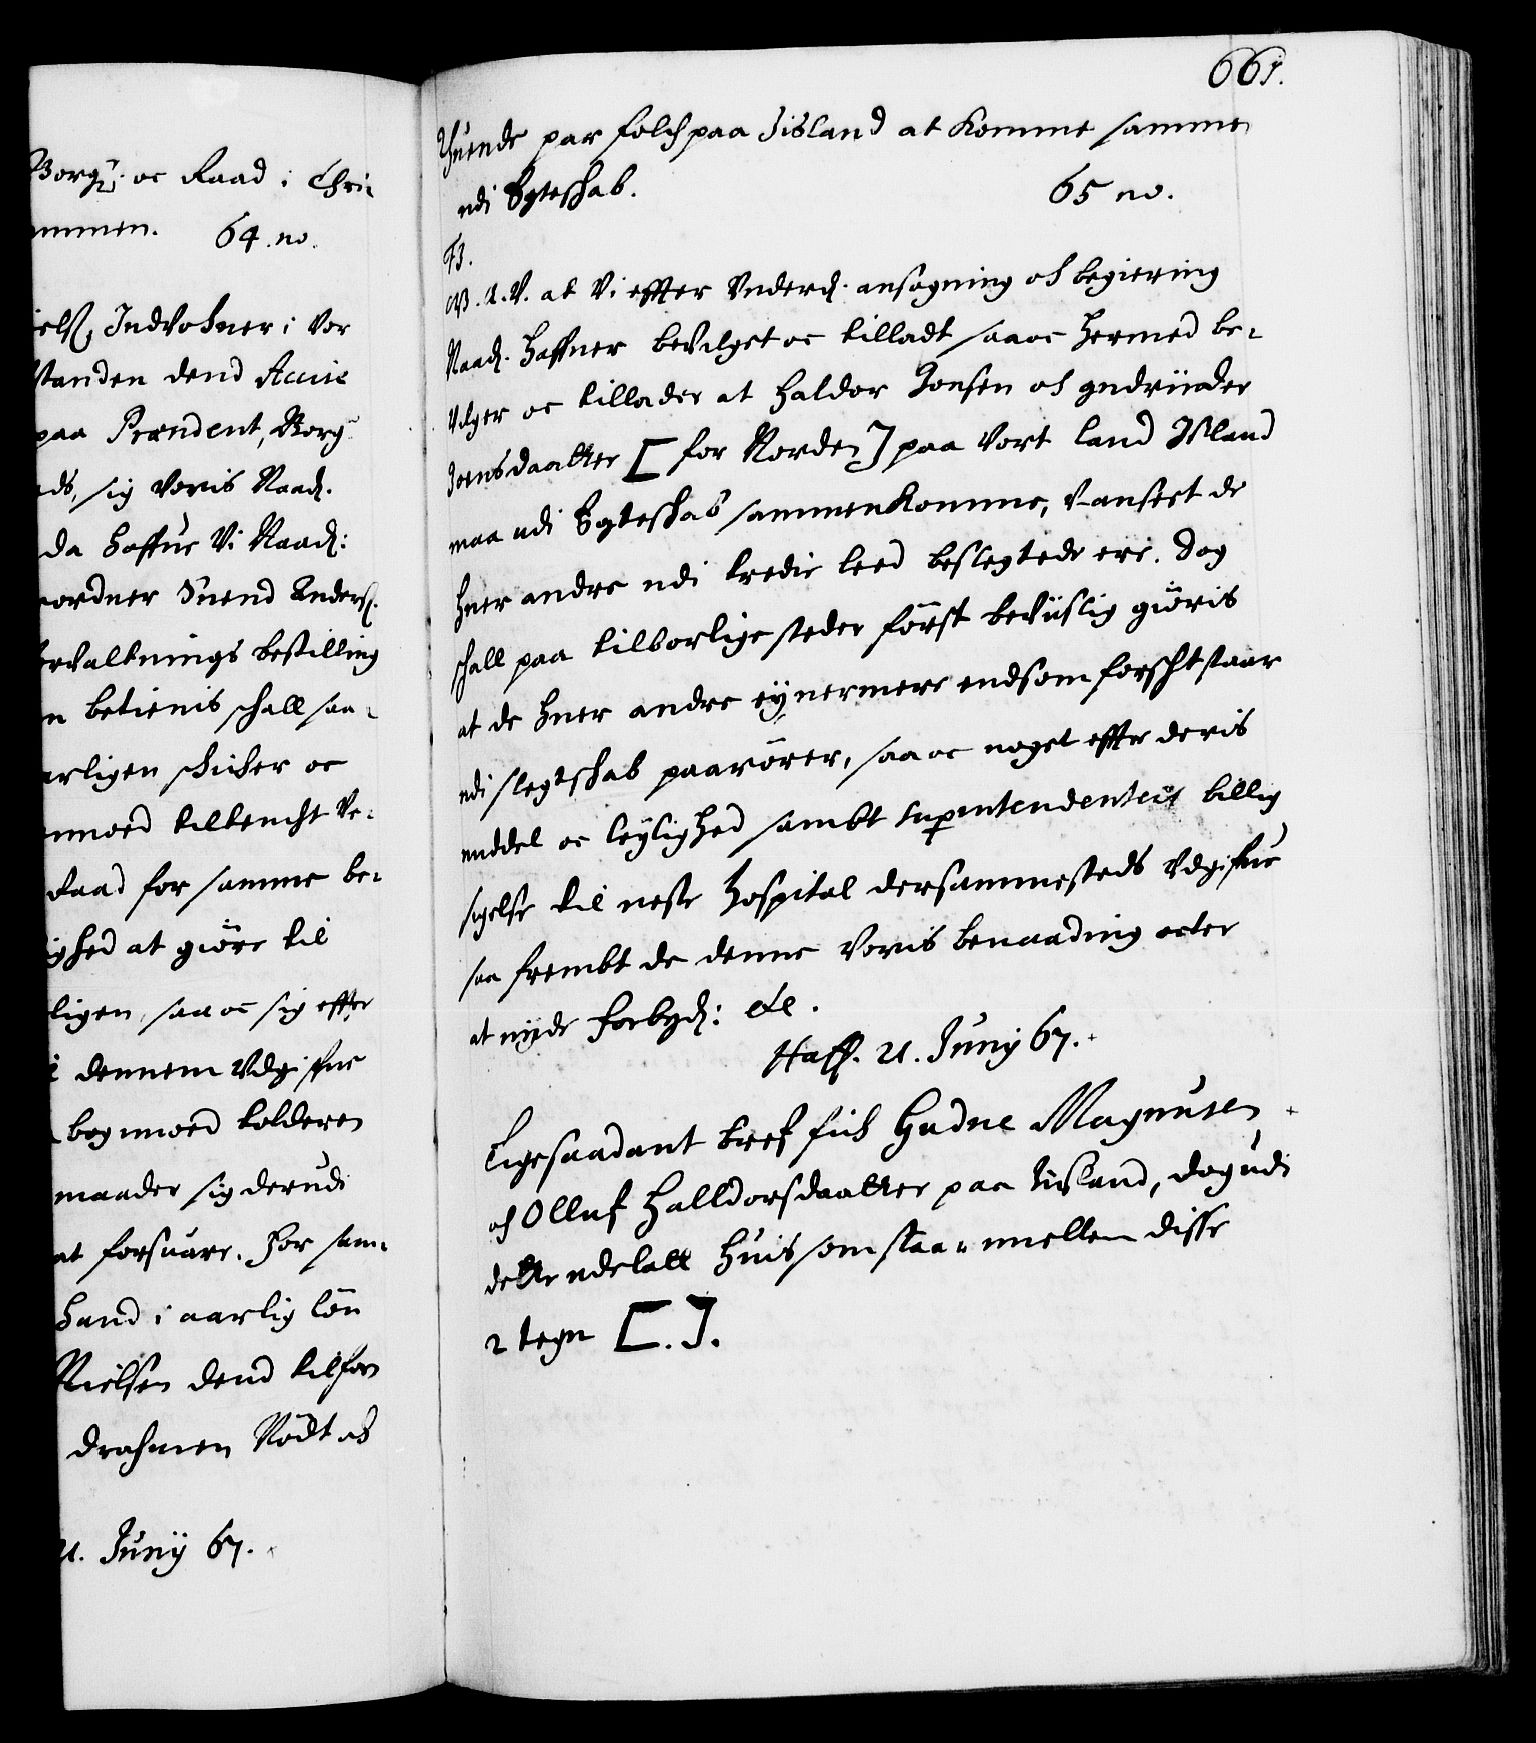 Borgm: oc Raad i Chri-
ammen. 64. no.
iels, Indvohner i vor
standen dend Accise
paa Præsident, Borg
eds, sig voris Naad.
da haffue Vi Naad:
eordner Suend Anders.
orvaltnings bestilling
n betienis schall saa-
arligen schicher oc
nmoed tiltencht ve-
Raad for samme be-
ighed at giöre til
ligen, saa oc sig effter
i dennem udgiffue
bogmoed tolderen
maader sig derudi
at forsuare. For sam-
hand i aarlig lön
Nielsen dend tilforn
drahmen Nödt oc
21. Junij 67.
661.
Thuende par folch paa Iisland at komme sammen
udi Egteschab. 65 no.
F3.
G.A.V. at Vi effter underd. ansögning och begiering
Naad. haffuer bevilget oc tilladt saa oc hermed be-
vilger oc tillader at Haldor Jonsen och Gudrun
Joensdaatter [for Norden] paa vort land Island
maa udi Egteschab sammenkomme, U-anseet de
huer andre udi tredie leed beslegtede ere. Dog
schall paa tilbörlige steder först bevislig giöris
at de huer andre ey nermere end som forschrefstaar
udi slegtschab paarörer, saa oc noget effter deris
middel oc leylighed sambt Superintendentens billig
sigelse til neste Hospital dersammesteds udgiffue
saa frembt de denne voris benaading acter
at nyde Forbyd: etc.
Haff. 21. Junij 67.
Ligesaadant bref fich Gudne Magnusen
och Olluf Halldorsdaatter paa Iisland, dog udi
dette udelatt huis som staar imellem disse
2 tegn [.].